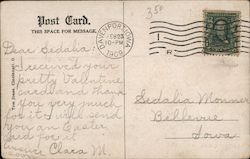 Post Card.
THIS SPACE FOR MESSAGE.
350
DAVENPORT, IOWA
FEB 23
10-PM
1909
Dear Sedalia:
I received your
pretty Valentine
card and thank
you very much
for it. I will send
you an Easter
card for it.
Clara M.
Sedalia
Bellevue
Iowa